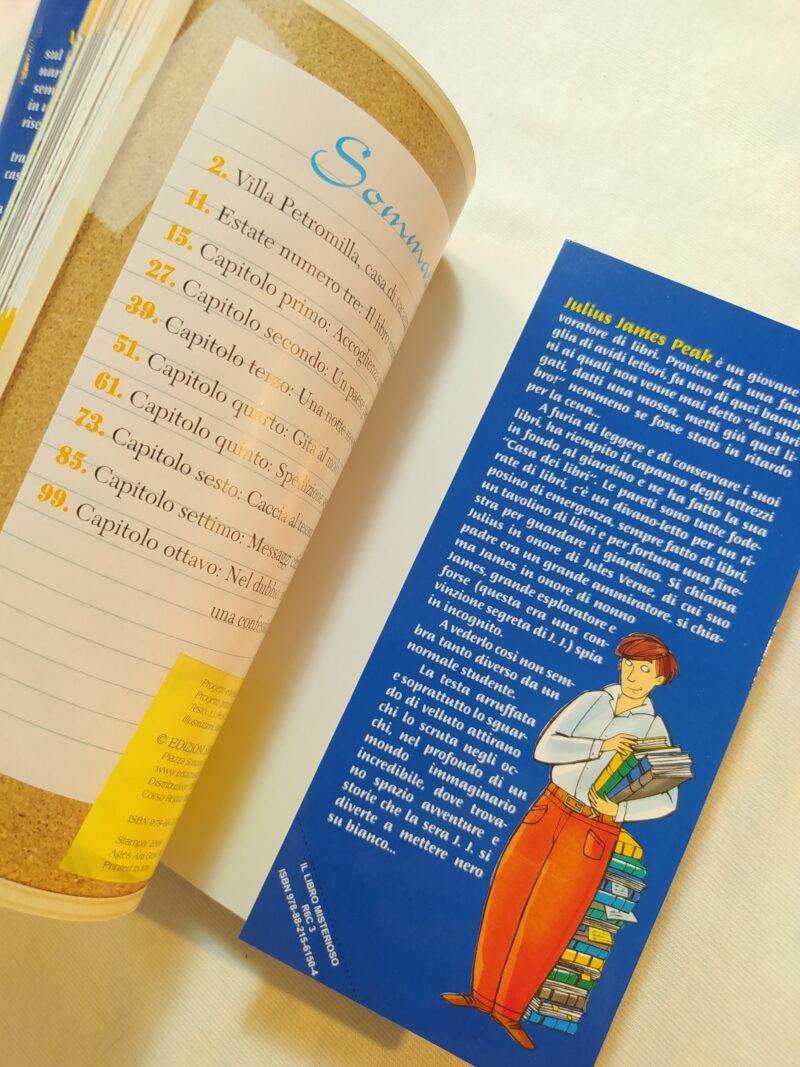 Somma
2. Villa Petromilla, casa di
11. Estate numero tre: Il libro
15. Capitolo primo: Accoglienza
27. Capitolo secondo: Un paese
39. Capitolo terzo: Una notte
51. Capitolo quarto: Gita al
61. Capitolo quinto: Spedizione
73. Capitolo sesto: Caccia al
85. Capitolo settimo: Messaggi
99. Capitolo ottavo: Nel dubbio
una
© EDIZIONI
Piazza
Corso
ISBN
Stampa:
Printed in
Julius James Peak è un giovane
voratore di libri. Proviene da una fami
glia di avidi lettori, fu uno di quei bambi
ni ai quali non venne mai detto "dai sbri
gati, datti una mossa, metti giù quel li-
bro!" nemmeno se fosse stato in ritardo
per la cena...
A furia di leggere e di conservare i suoi
libri, ha riempito il capanno degli attrezzi
in fondo al giardino e ne ha fatto la sua
"Casa dei libri". Le pareti sono tutte fode-
rate di libri, c'è un divano-letto per un ri-
posino di emergenza, sempre fatto di libri,
un tavolino di libri e per fortuna una fine-
stra per guardare il giardino. Si chiama
Julius in onore di Jules Verne, di cui suo
padre era un grande ammiratore, si chia-
ma James in onore di nonno
James, grande esploratore e
forse (questa era una con-
vinzione segreta di J. J.) spia
in incognito.
A vederlo così non sem-
bra tanto diverso da un
normale studente.
La testa arruffata
e soprattutto lo sguar-
do di velluto attirano
chi lo scruta negli oc-
chi, nel profondo di un
mondo immaginario
incredibile, dove trova-
no spazio avventure e
storie che la sera J. J. si
diverte a mettere nero
su bianco...
IL LIBRO MISTERIOSO
R6C 3
ISBN 978-88-215-6150-4